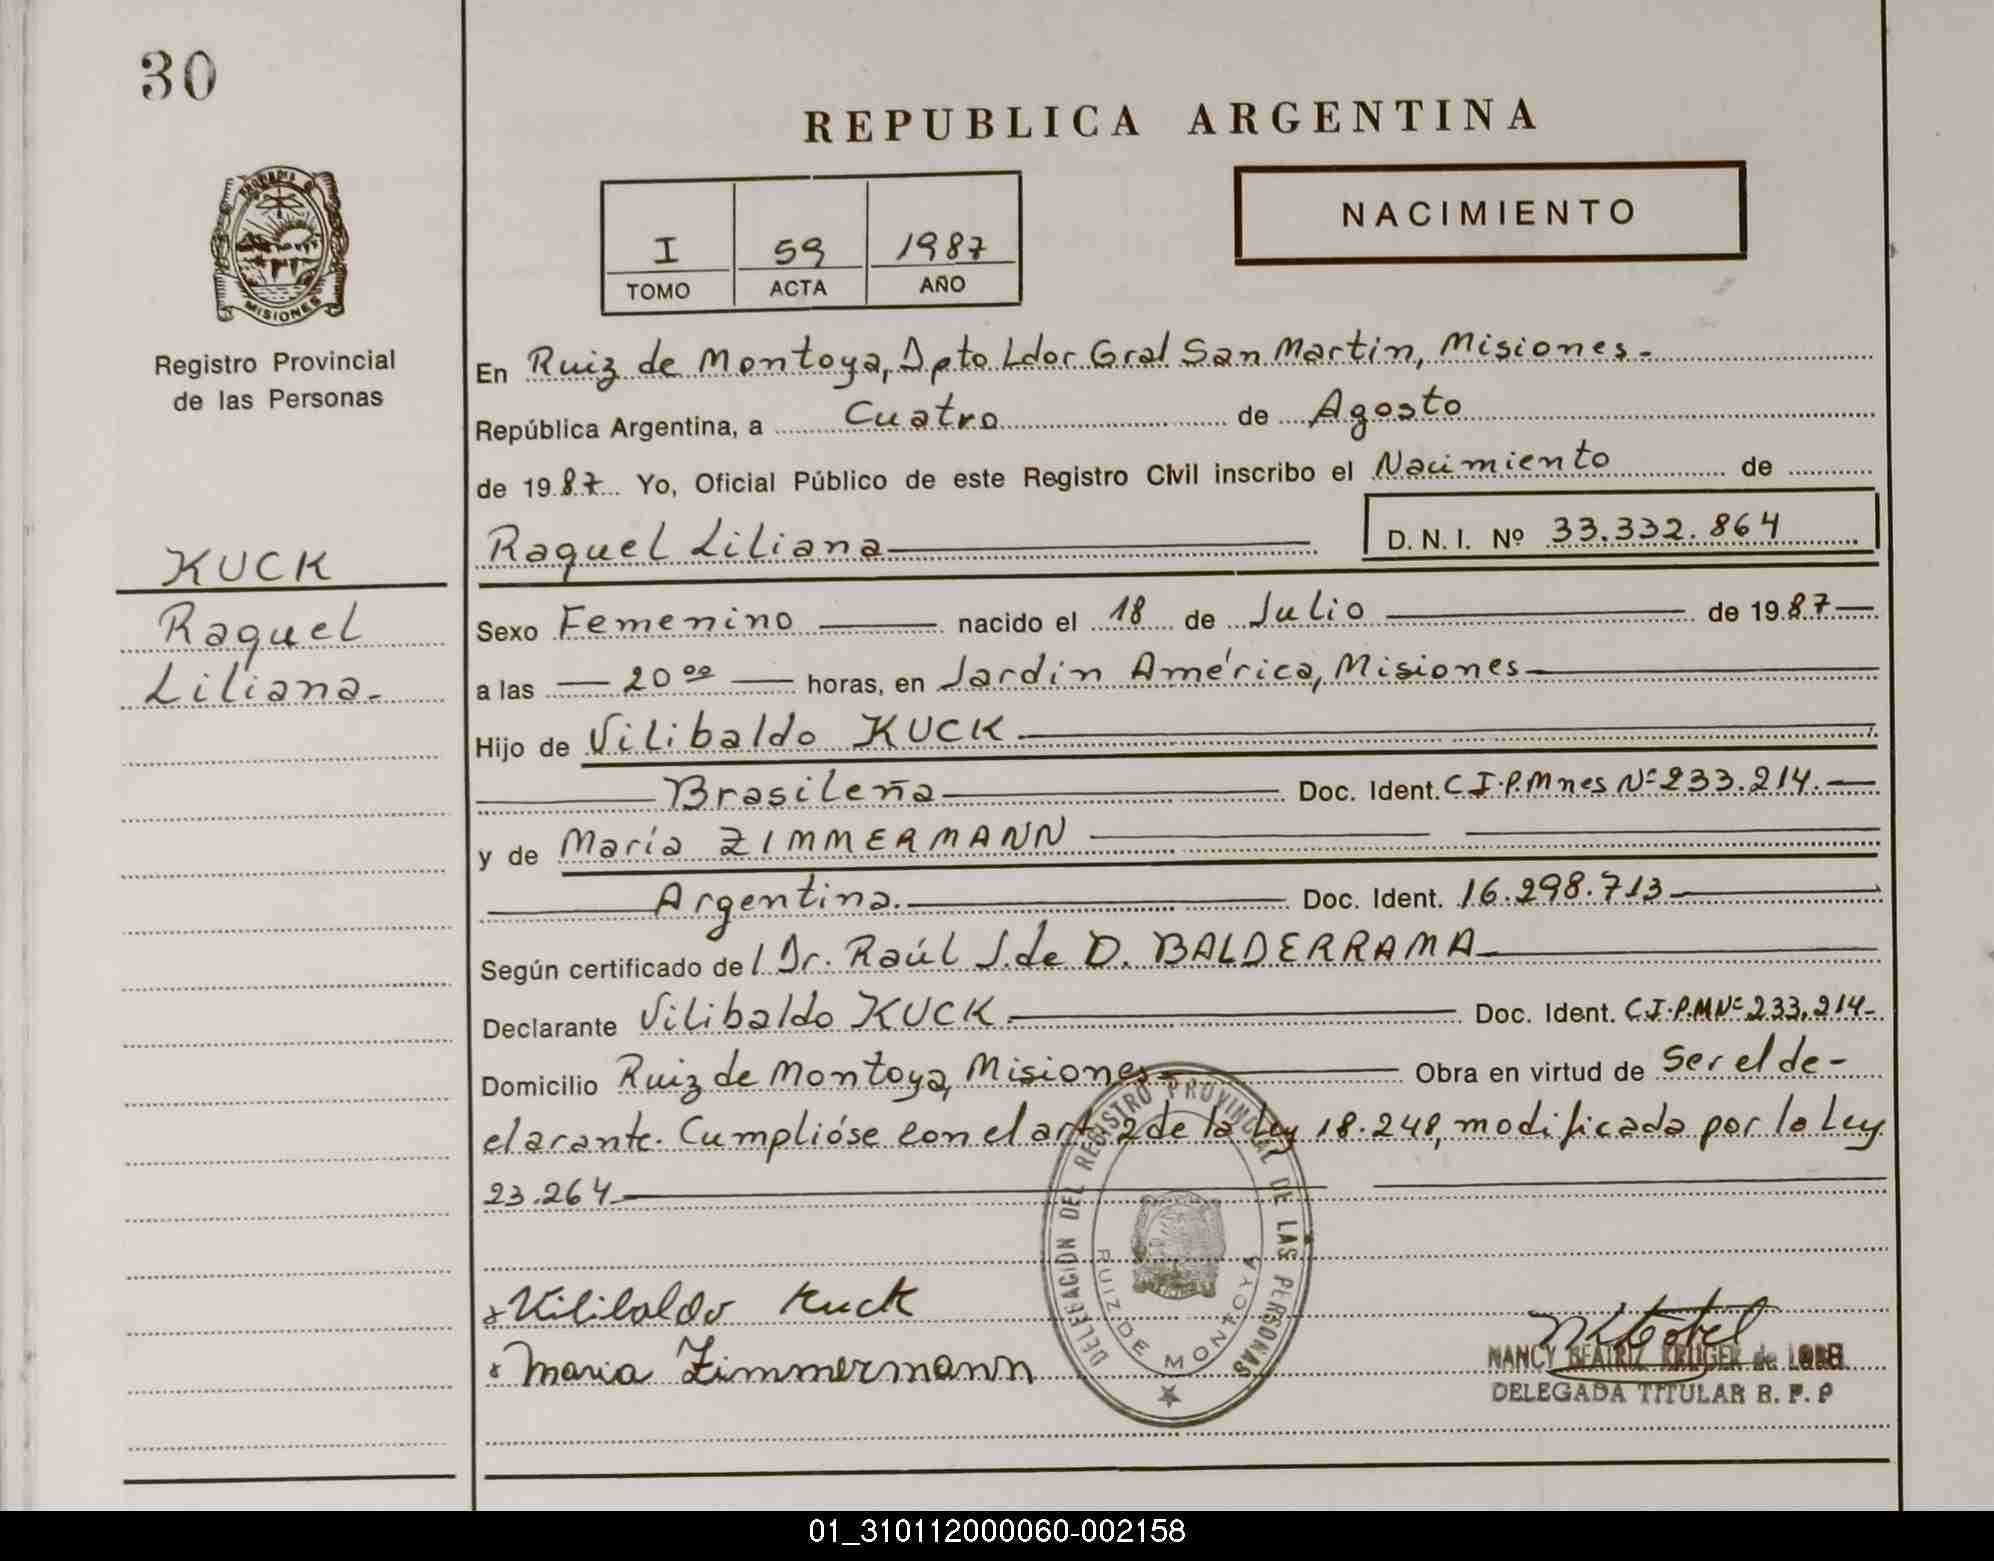 30
REPUBLICA ARGENTINA
NACIMIENTO
I 59 1987
TOMO ACTA AÑO
MISIONES
Registro Provincial
de las Personas
KUCK
Raquel
Liliana.
En Ruiz de Montoya, Dpto Ldor Gral San Martin, Misiones.
República Argentina, a Cuatro de Agosto
de 1987 Yo, Oficial Público de este Registro Civil inscribo el Nacimiento de
Raquel Liliana D. N. I. Nº 33.332.864
Sexo Femenino nacido el 18 de Julio de 1987
a las 20 00 horas, en Jardín América, Misiones
Hijo de Vilibaldo KUCK
Brasileña Doc. Ident. C I.P.Mnes Nº 233.214.
y de María ZIMMERMANN
Argentina. Doc. Ident. 16.298.713
Según certificado del Dr. Raúl J. de D. BALDERRAMA
Declarante Vilibaldo KUCK. Doc. Ident. C.I.P.M Nº 233.214
Domicilio Ruiz de Montoya, Misiones Obra en virtud de Ser el de-
clarante. Cumplióse con el art. 2 de la Ley 18.248, modificada por la Ley
23.264
DELEGACION DEL REGISTRO PROVINCIAL DE LAS PERSONAS
RUIZ DE MONTOYA
Vilibaldo Kuck
Maria Zimmermann
NANCY BEATRIZ KRUGER de
DELEGADA TITULAR R. P. P
01_310112000060-002158